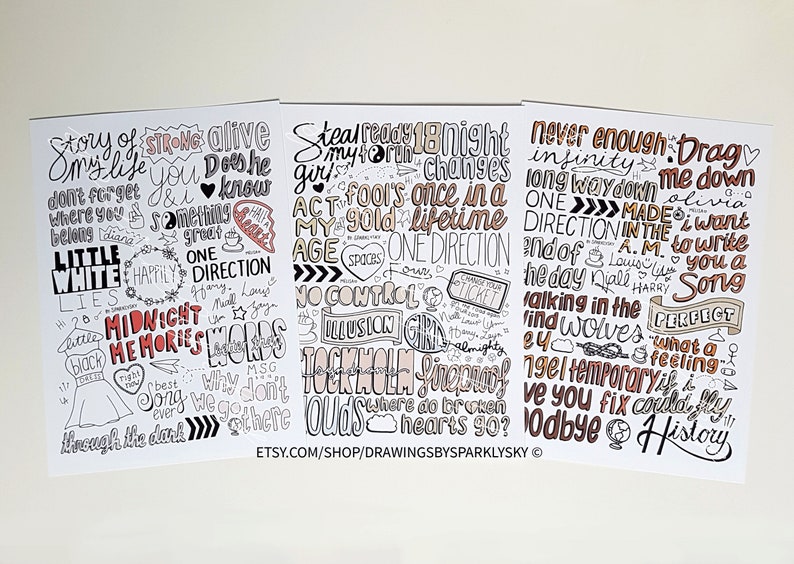 Story of
my life
STRONG
alive
you
& i
Does he
know
don't forget
where you
belong
diana
something
great
HALF A
heart
LITTLE
WHITE
LIES
HAPPILY
ONE
DIRECTION
MELISA
Harry,
Niall Louis
Zayn
BY SPARKLYSKY
Hi
MIDNIGHT
MEMORIES
little
black
DRESS
better than
WORDS
right
now
best
song
ever
M.S.G
why don't
we go there
through the dark
Steal
my
girl
ready
to run
18
night
changes
ACT
MY
AGE
fool's
gold
once in a
lifetime
BY SPARKLYSKY
MELISA
SPACES
ONE DIRECTION
Four
CHANGE YOUR
TICKET
NO CONTROL
ILLUSION
GIRL
almighty
STOCKHOLM
syndrome
fireproof
clouds
where do broken
hearts go?
never enough
infinity
Hi
LA
Drag
me down
long way down
olivia
ONE
DIRECTION
MADE
IN THE
A.M.
BY SPARKLYSKY
MELISA
i want
to write
you a
Song
end of
the day
Louis
Niall
HARRY
walking in the
wind
wolves
PERFECT
hey
"what a
feeling"
angel
temporary
fix
if i
could fly
love you
goodbye
History
ETSY.COM/SHOP/DRAWINGSBYSPARKLYSKY ©